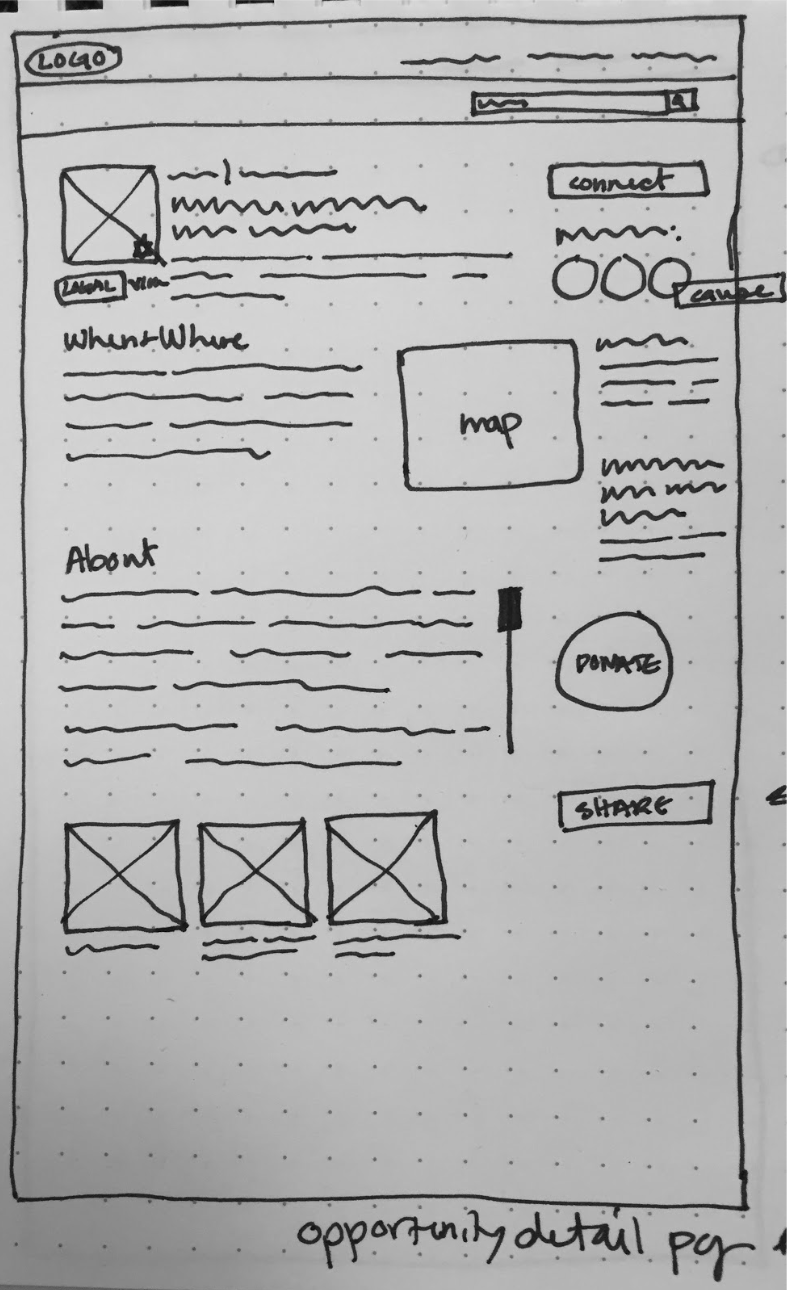 LOGO
connect
LOCAL
cause
When + Where
map
About
DONATE
SHARE
opportunity detail pg